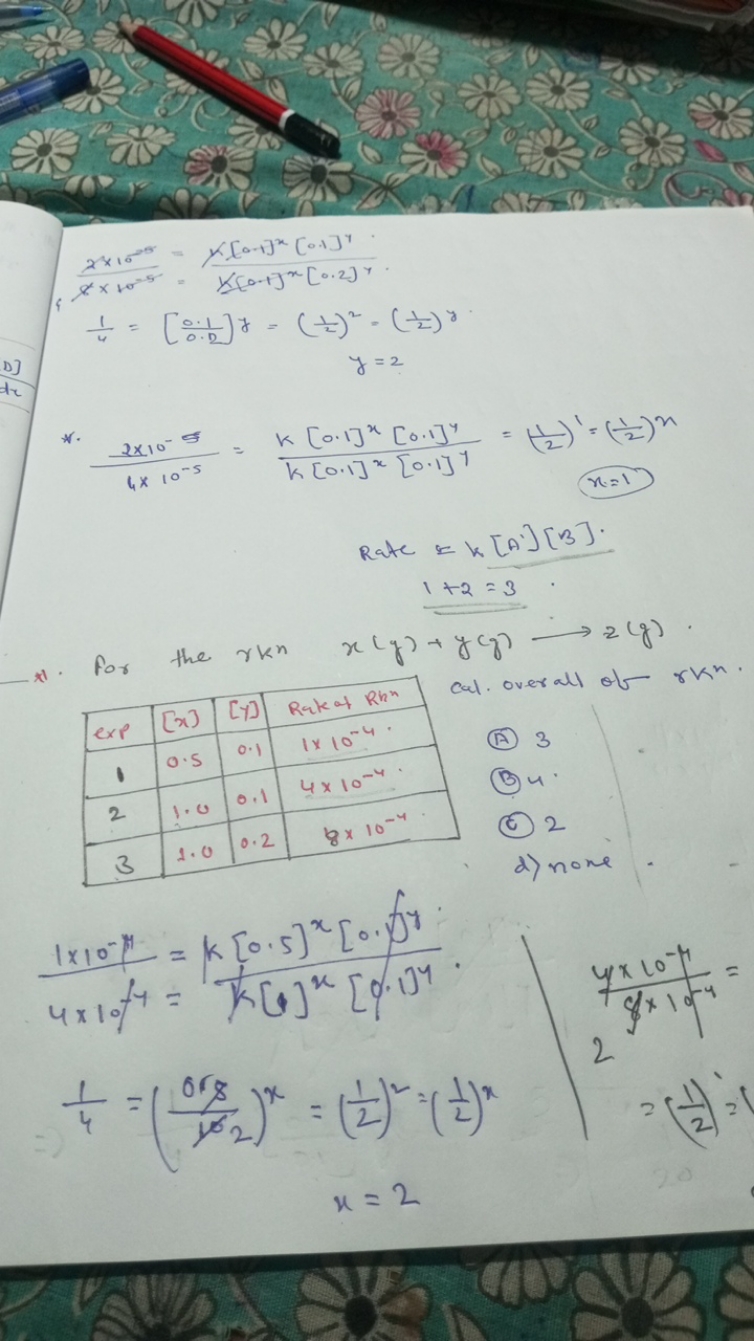 2×10⁻⁵ / 8×10⁻⁵ = K[0.1]ˣ [0.1]ʸ / K[0.1]ˣ [0.2]ʸ
1/4 = [0.1/0.2]ʸ = (1/2)² = (1/2)ʸ
y = 2
D]
dt
*. 2×10⁻⁵ / 4×10⁻⁵ = K [0.1]ˣ [0.1]ʸ / K[0.1]ˣ [0.1]ʸ = (1/2)¹ = (1/2)ˣ
x=1
Rate = K [A'] [B].
1+2 = 3
*. For the rkn x(g) + y(g) ⟶ z(g).
Cal. overall of rkn.
exp [x] [Y] Rate of Rkn
1 0.5 0.1 1×10⁻⁴
2 1.0 0.1 4×10⁻⁴
3 1.0 0.2 8×10⁻⁴
(A) 3
(B) 4
(C) 2
d) none
1×10⁻⁴ / 4×10⁻⁴ = K[0.5]ˣ [0.1]ʸ / K[1]ˣ [0.1]ʸ
1/4 = (05/10 2)ˣ = (1/2)² = (1/2)ˣ
x = 2
4×10⁻⁴ / 8×10⁻⁴ =
2
= (1/2)¹ = (